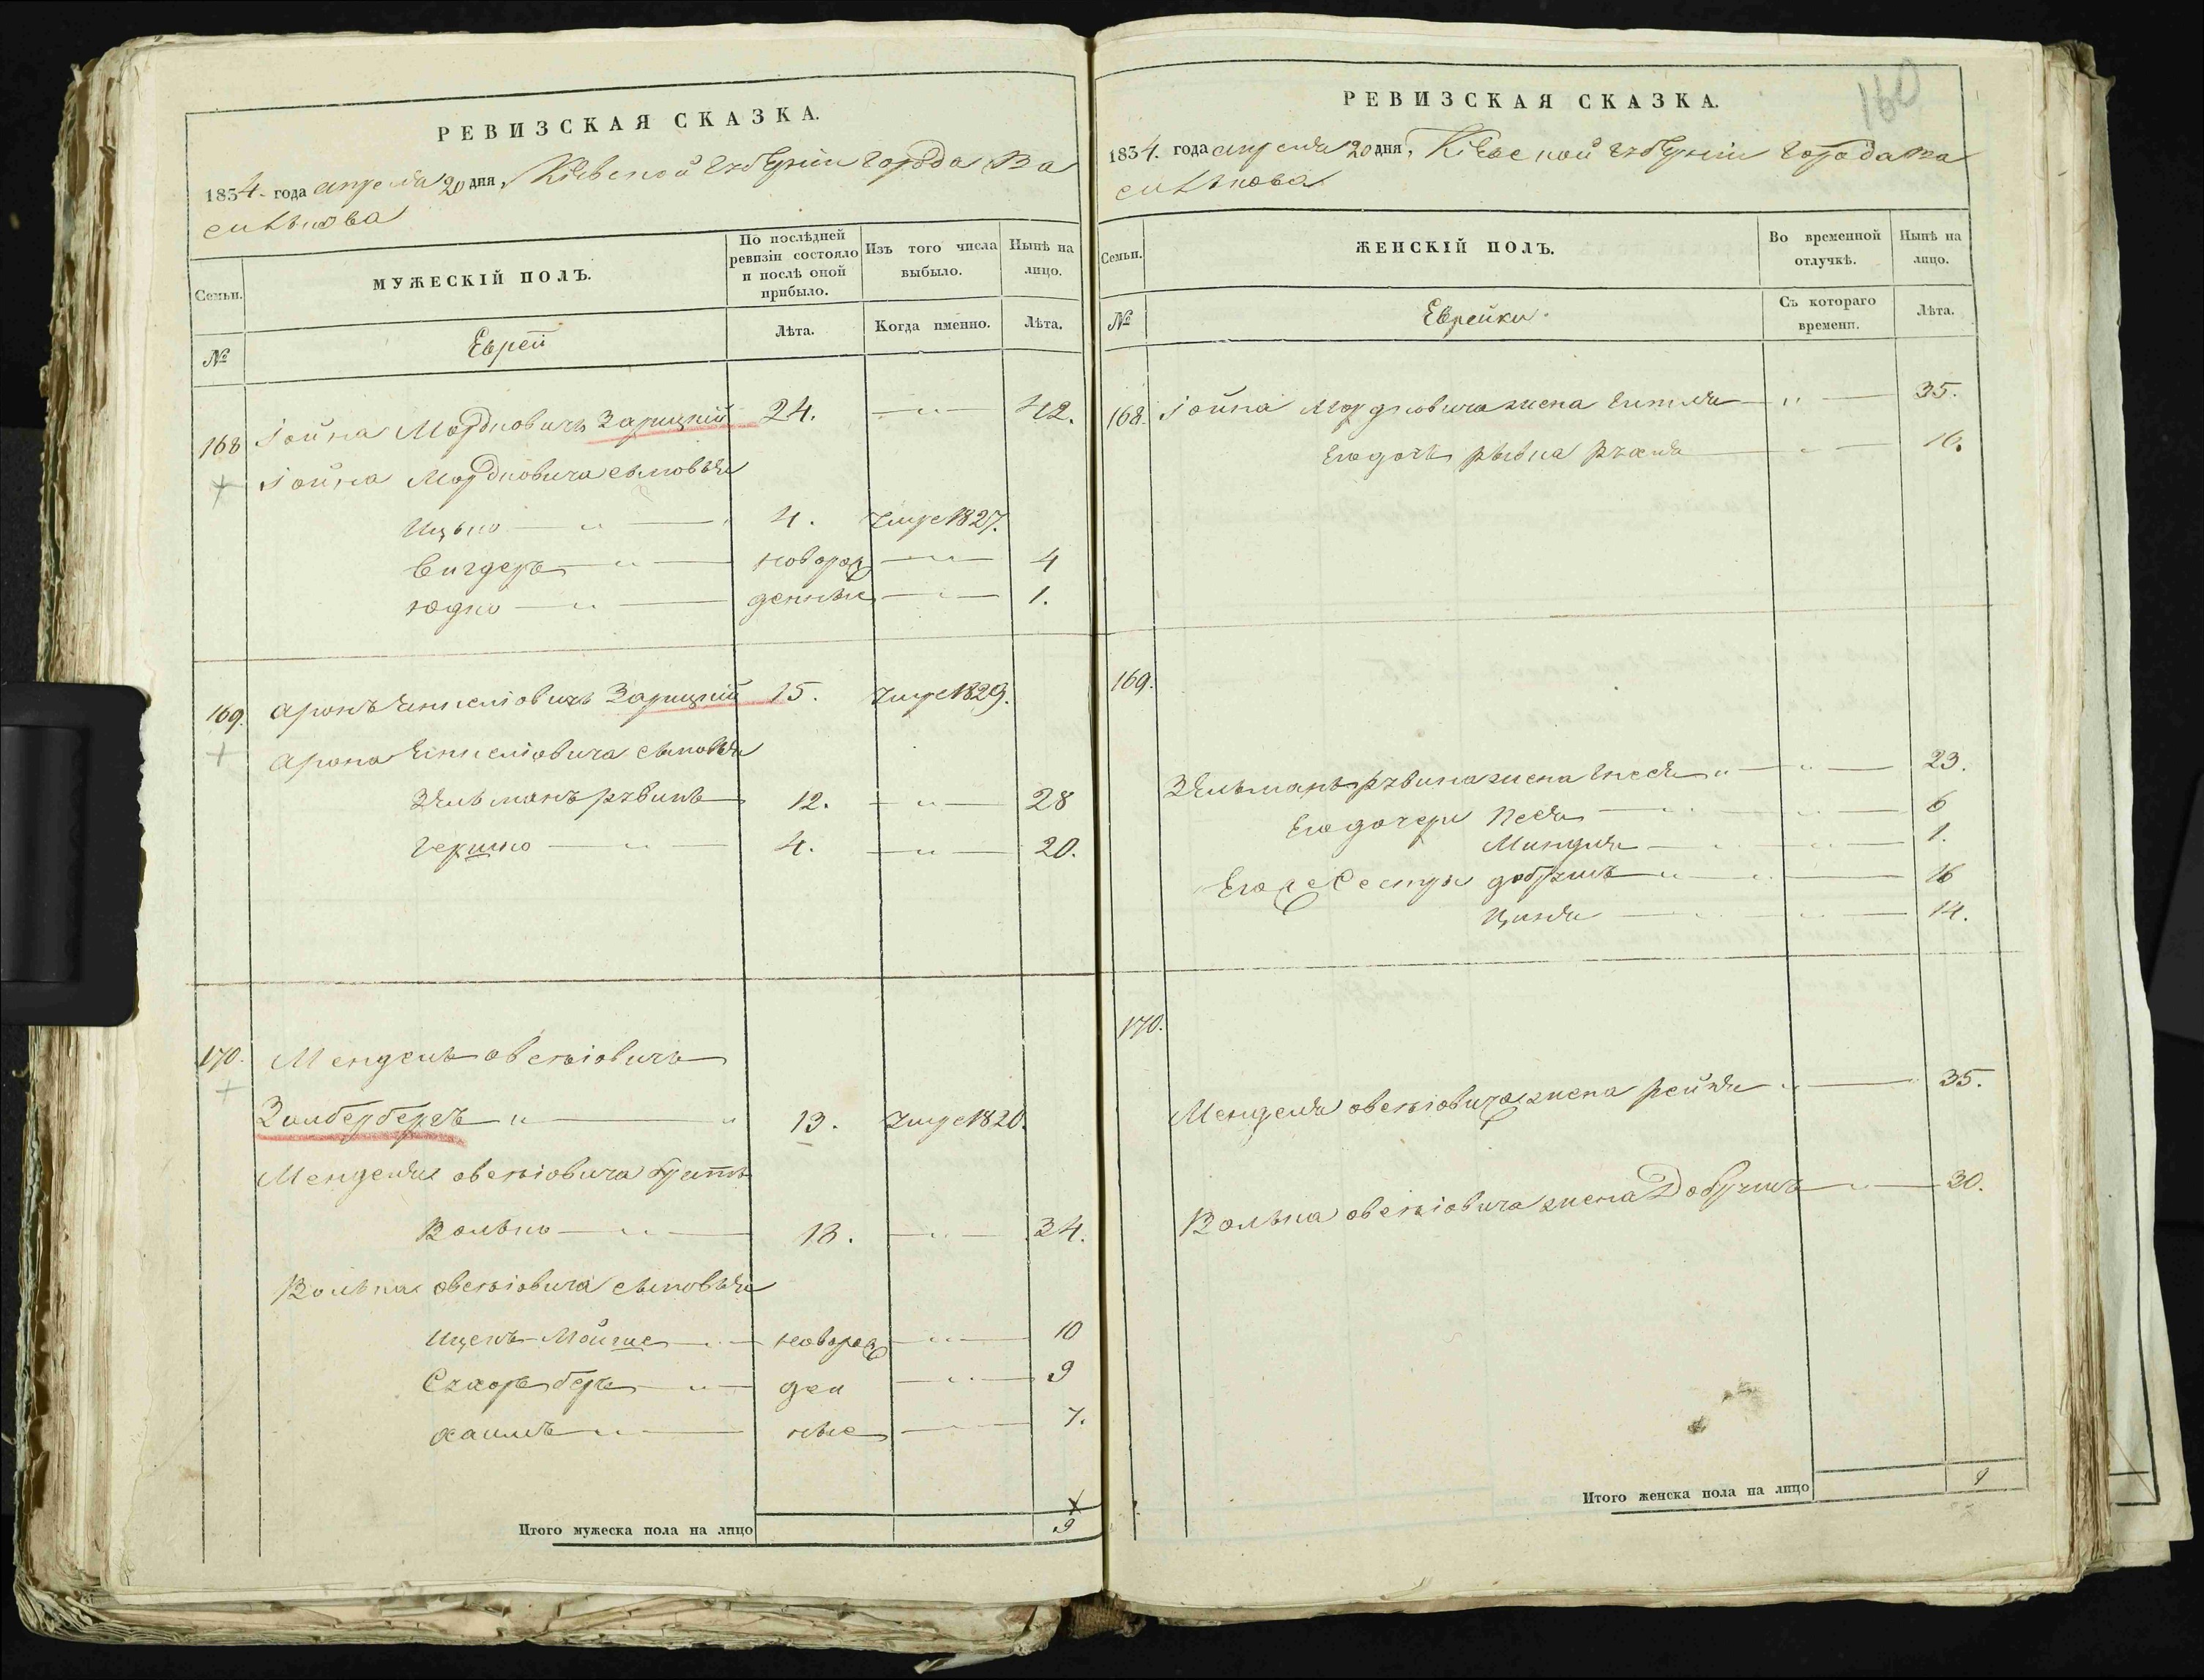 РЕВИЗСКАЯ СКАЗКА.
1834. года апреля 20 дня, Кіевской губерніи города Ва
силькова
Семьи.
МУЖЕСКІЙ ПОЛЪ.
По послѣдней ревизіи состояло и послѣ оной прибыло.
Изъ того числа выбыло.
Нынѣ на лицо.
№
Еврей
Лѣта.
Когда именно.
Лѣта.
168 Іойна Мордковичъ Зарицкій 24. 42.
Іойна Мордковича сыновья
Ицько 4. умре 1827.
Вигдеръ новорож 4
Юдко денные 1.
169. Аронъ Зарицкій 15. умре 1829.
Арона сыновья
Зельманъ рувинъ 12. 28
Гершко 4. 20.
170. Мендель овсѣіовичъ
Зильбербергъ 13. умре 1820.
Менделя овсѣіовича братъ
Волько 18. 34.
Волька овсѣіовича сыновья
Ицекъ Мойше новорож 10
Сухоръ беръ ден 9
хаимъ ные 7.
Итого мужеска пола на лицо 9
160
РЕВИЗСКАЯ СКАЗКА.
1834. года апреля 20 дня, Кіевской губерніи города Ва
силькова
Семьи.
ЖЕНСКІЙ ПОЛЪ.
Во временной отлучкѣ.
Нынѣ на лицо.
№
Еврейки.
Съ котораго времени.
Лѣта.
168. Іойна Мордковича жена Гитля 35.
Его дочь рывка рухля 10.
169.
Зельманъ рувина жена Гнеся 23.
Его дочери Песя 6
Миндля 1.
Его же Сестры добрышъ 16
Ципя 14.
170.
Менделя овсѣіовича жена рейзя 35.
Волька овсѣіовича жена Добрышъ 30.
Итого женска пола на лицо 9